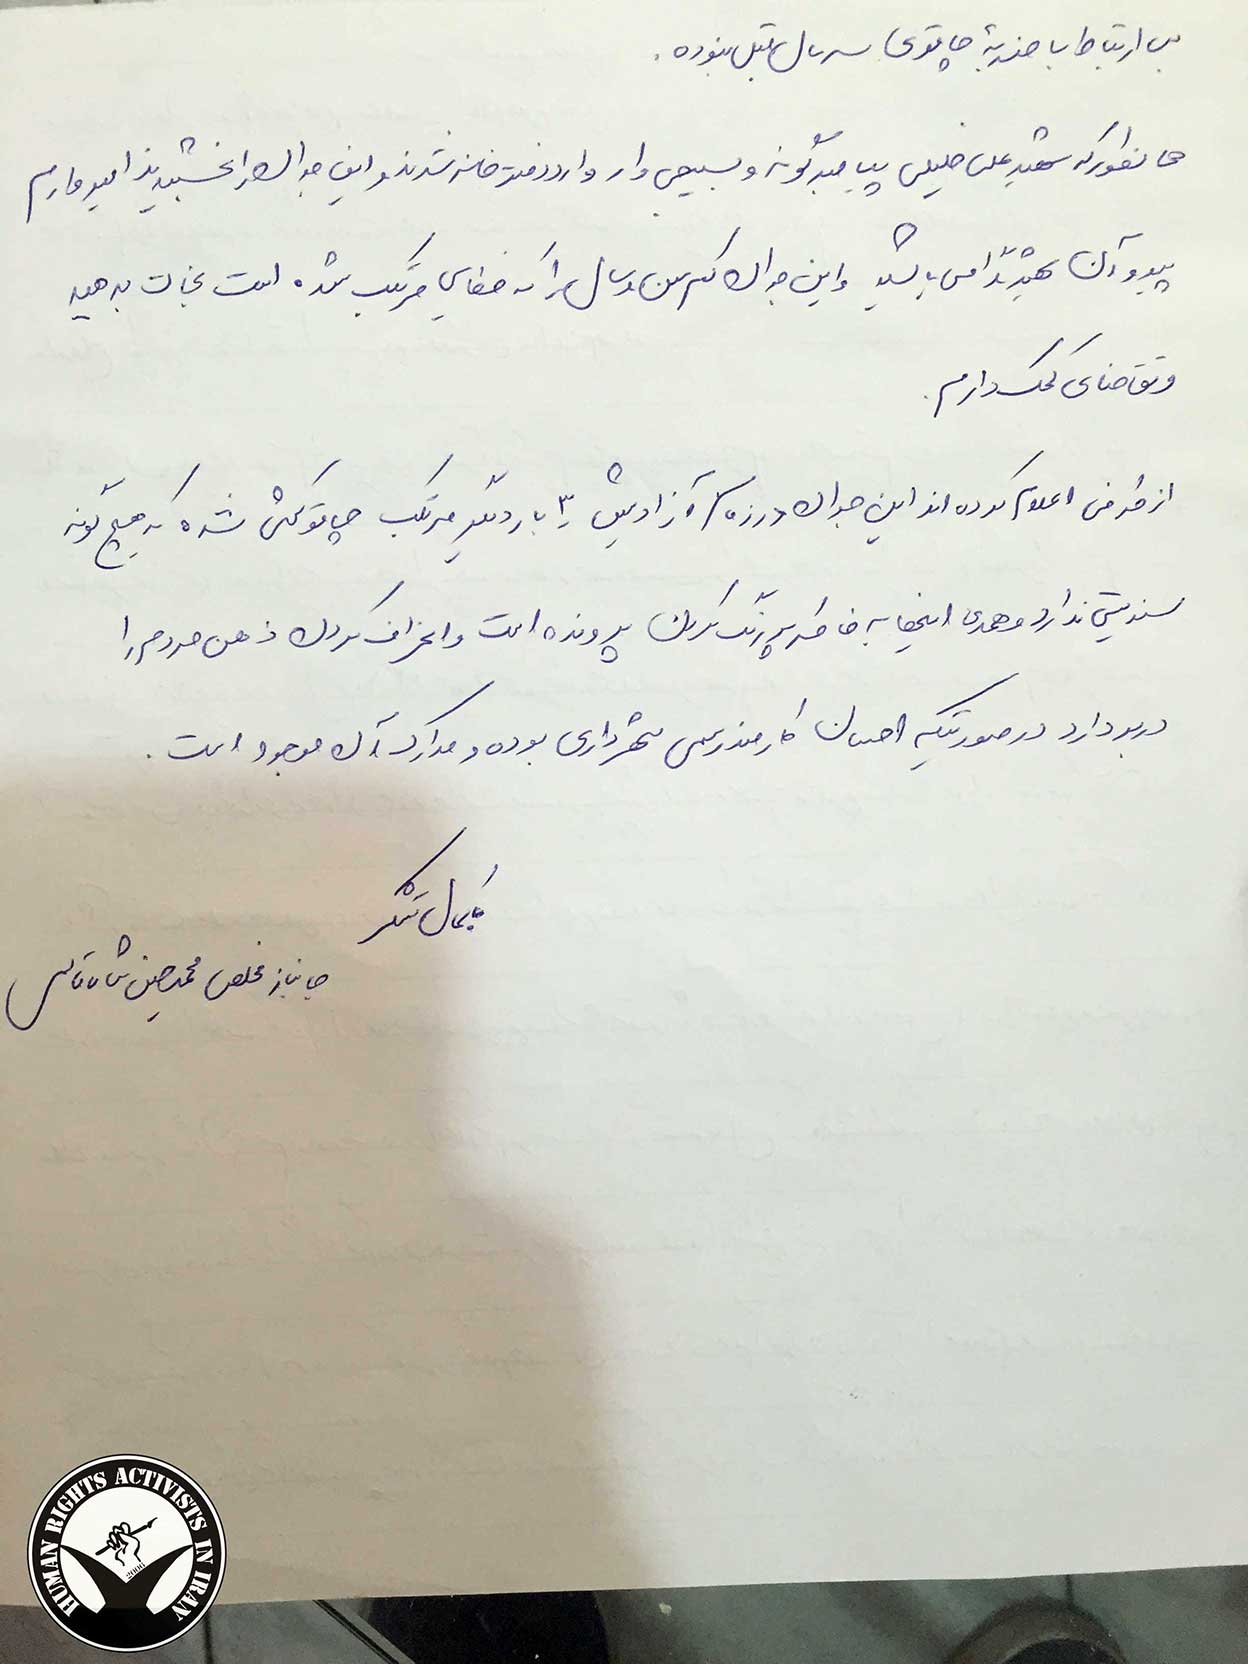 بی ارتباط با ضربهٔ چاقوی سه سال قبل نبوده .
همانطور که شهید علی خلیلی پیامبر گونه و بسیجی وار وارد دفترخانه شدند و این جوان را بخشیدند امیدوارم
پیرو آن شهید گرامی باشید و این جوان کم سن و سال را که خطایی مرتکب شده است نجات بدهید
و تقاضای کمک دارم .
از طرفی اعلام کرده اند این جوان در زمان آزادیش ۳ بار دیگر مرتکب چاقوکشی شده که هیچ گونه
سندیتی ندارد و همه‌ی اینها به خاطر پررنگ کردن پرونده است و انحراف کردن ذهن مردم را
در بر دارد در صورتیکه احسان کارمند رسمی شهرداری بوده و مدارک آن موجود است .
با کمال تشکر
جانباز مخلص محمدحسین شاه قاسمی
HUMAN RIGHTS ACTIVISTS IN IRAN
2006